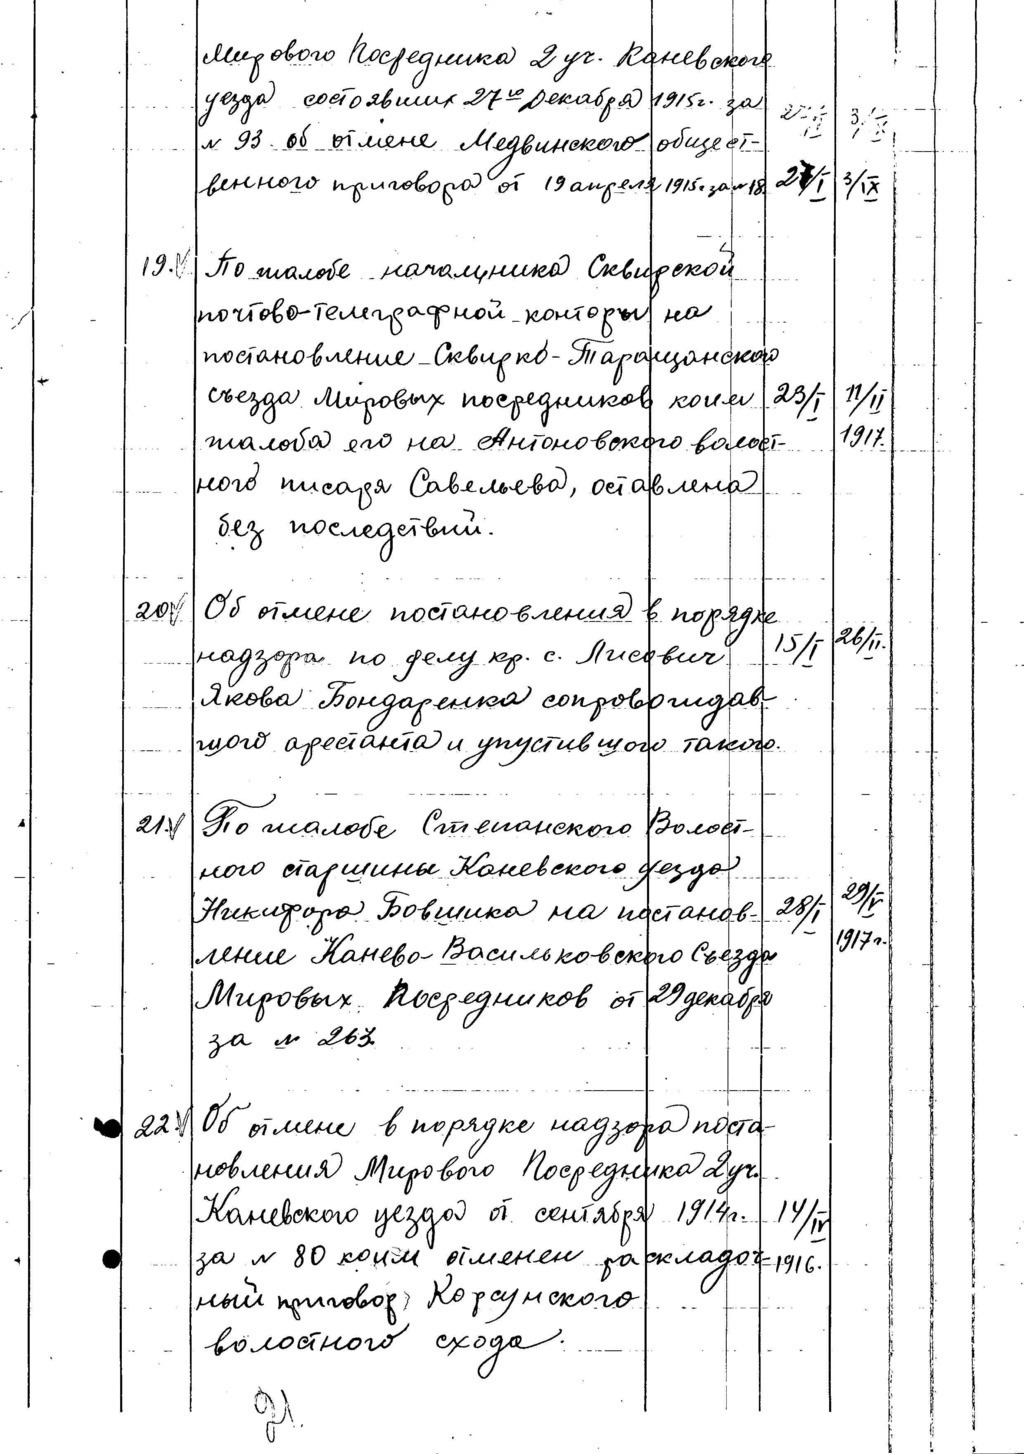 Мирового Посредника 2 уч. Каневского
уезда состоявших 27го Декабря 1915г. за
№ 93 об отмене Медвинского общест-
венного приговора от 19 апреля 1915г. за №18. 27/I 3/IX
19. По жалобе начальника Сквирской
почтово-телеграфной конторы на
постановление Сквирко-Таращанского
съезда Мировых посредников коим 23/I 11/II
жалоба его на Антоновского волост- 1917.
ного писаря Савельева, оставлена
без последствий.
20. Об отмене постановления в порядке
надзора по делу кр. с. Лисович 15/I 26/II.
Якова Бондаренка сопровождав-
шого арестанта и упустившого такого.
21. По жалобе Степанского Волост-
ного старшины Каневского уезда
Никифора Бовшика на постанов- 28/I 29/V
ление Канево-Васильковского Съезда 1917г.
Мировых Посредников от 29 декабря
за № 263.
22. Об отмене в порядке надзора поста-
новления Мирового Посредника 2 уч.
Каневского уезда от сентября 1914г. 14/IV
за № 80 коим отменен раскладоч- 1916.
ный приговор Корсунского
волостного схода.